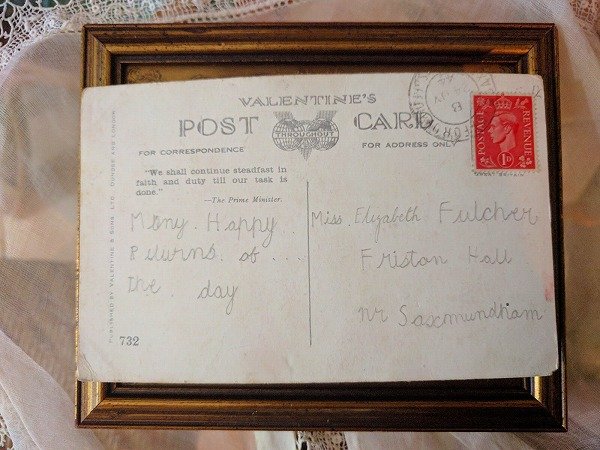 VALENTINE'S
POST CARD
THROUGHOUT
FOR CORRESPONDENCE
FOR ADDRESS ONLY
"We shall continue steadfast in
faith and duty till our task is
done."
—The Prime Minister.
Many Happy
Returns of
the day
732
PUBLISHED BY VALENTINE & SONS. LTD. DUNDEE AND LONDON
Miss. Elizabeth Fulcher
Friston Hall
nr Saxmundham
POSTAGE
REVENUE
1D